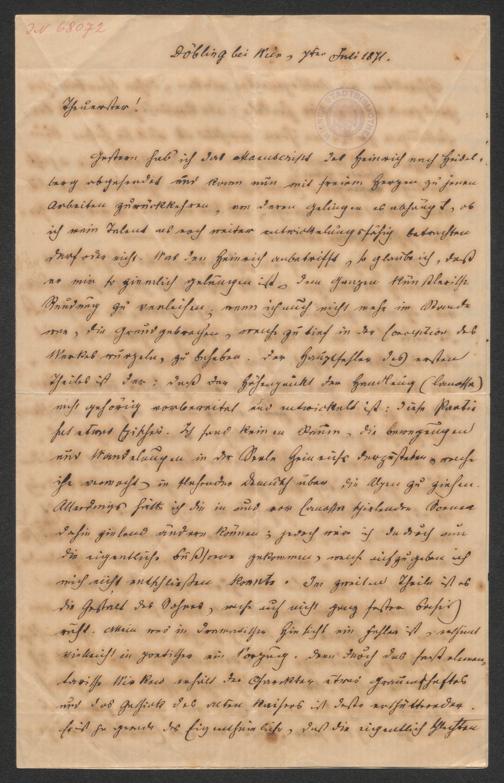 IN 68072
Döbling bei Wien, 7ter Juli 1871.
Theuerster!
Gestern hab ich das Manuscript des Heinrich nach Heidel-
berg abgesendet und kann nun mit freiem Herzen zu jenen
Arbeiten zurückkehren, von deren Gelingen es abhängt, ob
ich mein Talent als noch weiter entwickelungsfähig betrachten
darf oder nicht. Was den Heinrich anbetrifft, so glaube ich, daß
es mir so ziemlich gelungen ist, dem Ganzen künstlerische
Rundung zu verleihen, wenn ich auch nicht mehr im Stande
war, die Grundgebrechen, welche zu tief in der Conception des
Werkes wurzeln, zu beheben. Der Hauptfehler des ersten
Theiles ist der: daß der Höhenpunkt der Handlung (Canossa)
nicht gehörig vorbereitet und entwickelt ist: diese Partie
hat etwas Episches. Ich fand keinen Raum, die Bewegungen
und Wandelungen in der Seele Heinrichs darzustellen, welche
ihn vermocht, in flehender Demuth über die Alpen zu ziehen.
Allerdings hätte ich die in und vor Canossa spielenden Scenen
dahin zielend ändern können; jedoch wär ich dadurch um
die eigentliche gekommen, welche aufzugeben ich
mich nicht entschließen konnte. Im zweiten Theile ist es
die Gestalt des Sohnes, welche auf nicht ganz fester Basis
ruht. Allein was in dramatischer Hinsicht ein Fehler ist, erscheint
vielleicht in poetischer ein Vorzug. Denn durch das fast elemen-
tarische Wirken erhält der Charakter etwas Grauenhaftes
und das Geschick des alten Kaisers ist desto erschütternder.
ist ja gerade das Eigenthümliche, daß die eigentlich schlechten